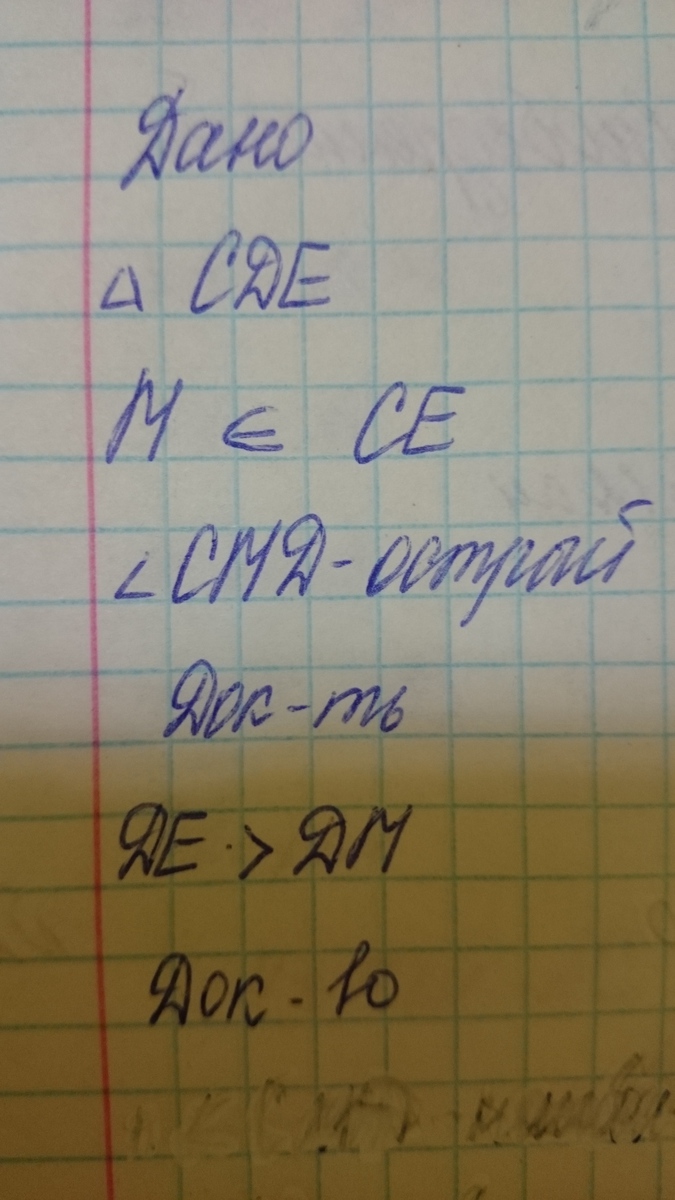 Дано
△ CDE
M ∈ CE
∠CMD - острый
Док-ть
DE > DM
Док-во